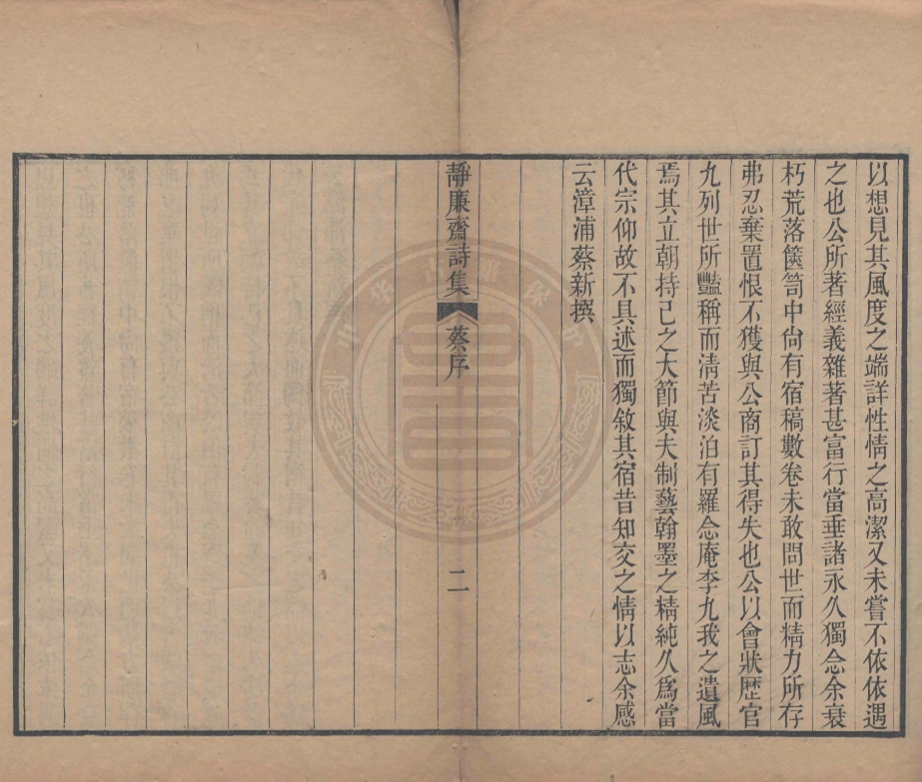 以想見其風度之端詳性情之高潔又未嘗不依依遇
之也公所著經義雜著甚富行當垂諸永久獨念余衰
朽荒落篋笥中尙有宿稿數卷未敢問世而精力所存
弗忍棄置恨不獲與公商訂其得失也公以會狀歷官
九列世所豔稱而淸苦淡泊有羅念庵李九我之遺風
焉其立朝持己之大節與夫制藝翰墨之精純久爲當
代宗仰故不具述而獨敘其宿昔知交之情以志余感
云漳浦蔡新撰
靜廉齋詩集 蔡序 二